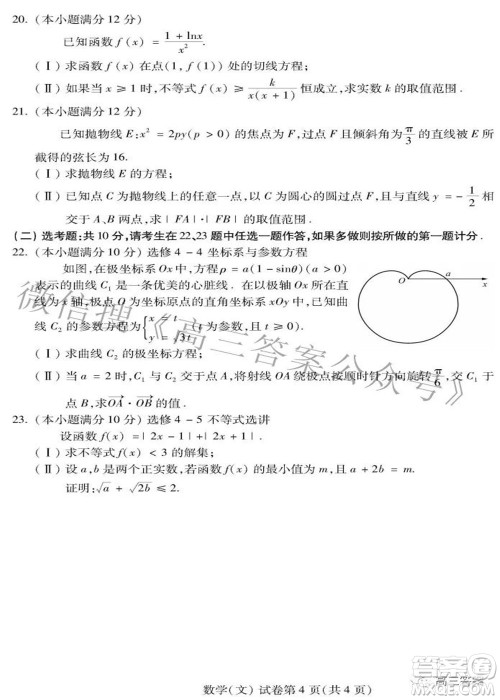 20. (本小题满分 12 分)
已知函数 f(x) = (1 + lnx)/x².
(Ⅰ) 求函数 f(x) 在点(1, f(1)) 处的切线方程;
(Ⅱ) 如果当 x ≥ 1 时, 不等式 f(x) ≥ k/(x(x + 1)) 恒成立, 求实数 k 的取值范围.
21. (本小题满分 12 分)
已知抛物线 E: x² = 2py(p > 0) 的焦点为 F, 过点 F 且倾斜角为 π/3 的直线被 E 所
截得的弦长为 16.
(Ⅰ) 求抛物线 E 的方程;
(Ⅱ) 已知点 C 为抛物线上的任意一点, 以 C 为圆心的圆过点 F, 且与直线 y = −1/2 相
交于 A、B 两点, 求 | FA | · | FB | 的取值范围.
(二) 选考题: 共 10 分, 请考生在 22、23 题中任选一题作答, 如果多做则按所做的第一题计分.
22. (本小题满分 10 分) 选修 4 − 4 坐标系与参数方程
如图, 在极坐标系 Ox 中, 方程 ρ = a(1 − sinθ)(a > 0)
表示的曲线 C₁ 是一条优美的心脏线. 在以极轴 Ox 所在直
线为 x 轴, 极点 O 为坐标原点的直角坐标系 xOy 中, 曲线
C₂ 的参数方程为 { x = t, y = √3t } 为参数, 且 t ≥ 0).
(Ⅰ) 求曲线 C₂ 的极坐标方程;
(Ⅱ) 当 a = 2 时, C₁ 与 C₂ 交于点 A, 将射线 OA 绕极点按顺时针方向旋转 π/6, 交 C₁ 于
点 B, 求 OA · OB 的值.
O a x
23. (本小题满分 10 分) 选修 4 − 5 不等式选讲
设函数 f(x) = | 2x − 1 | + | 2x + 1 |.
(Ⅰ) 求不等式 f(x) < 3 的解集;
(Ⅱ) 设 a, b 是两个正实数, 若函数 f(x) 的最小值为 m, 且 a + 2b = m.
证明: √a + √2b ≤ 2.
微信搜《高三答案公众号》
数学(文) 试卷第 4 页(共 4 页)